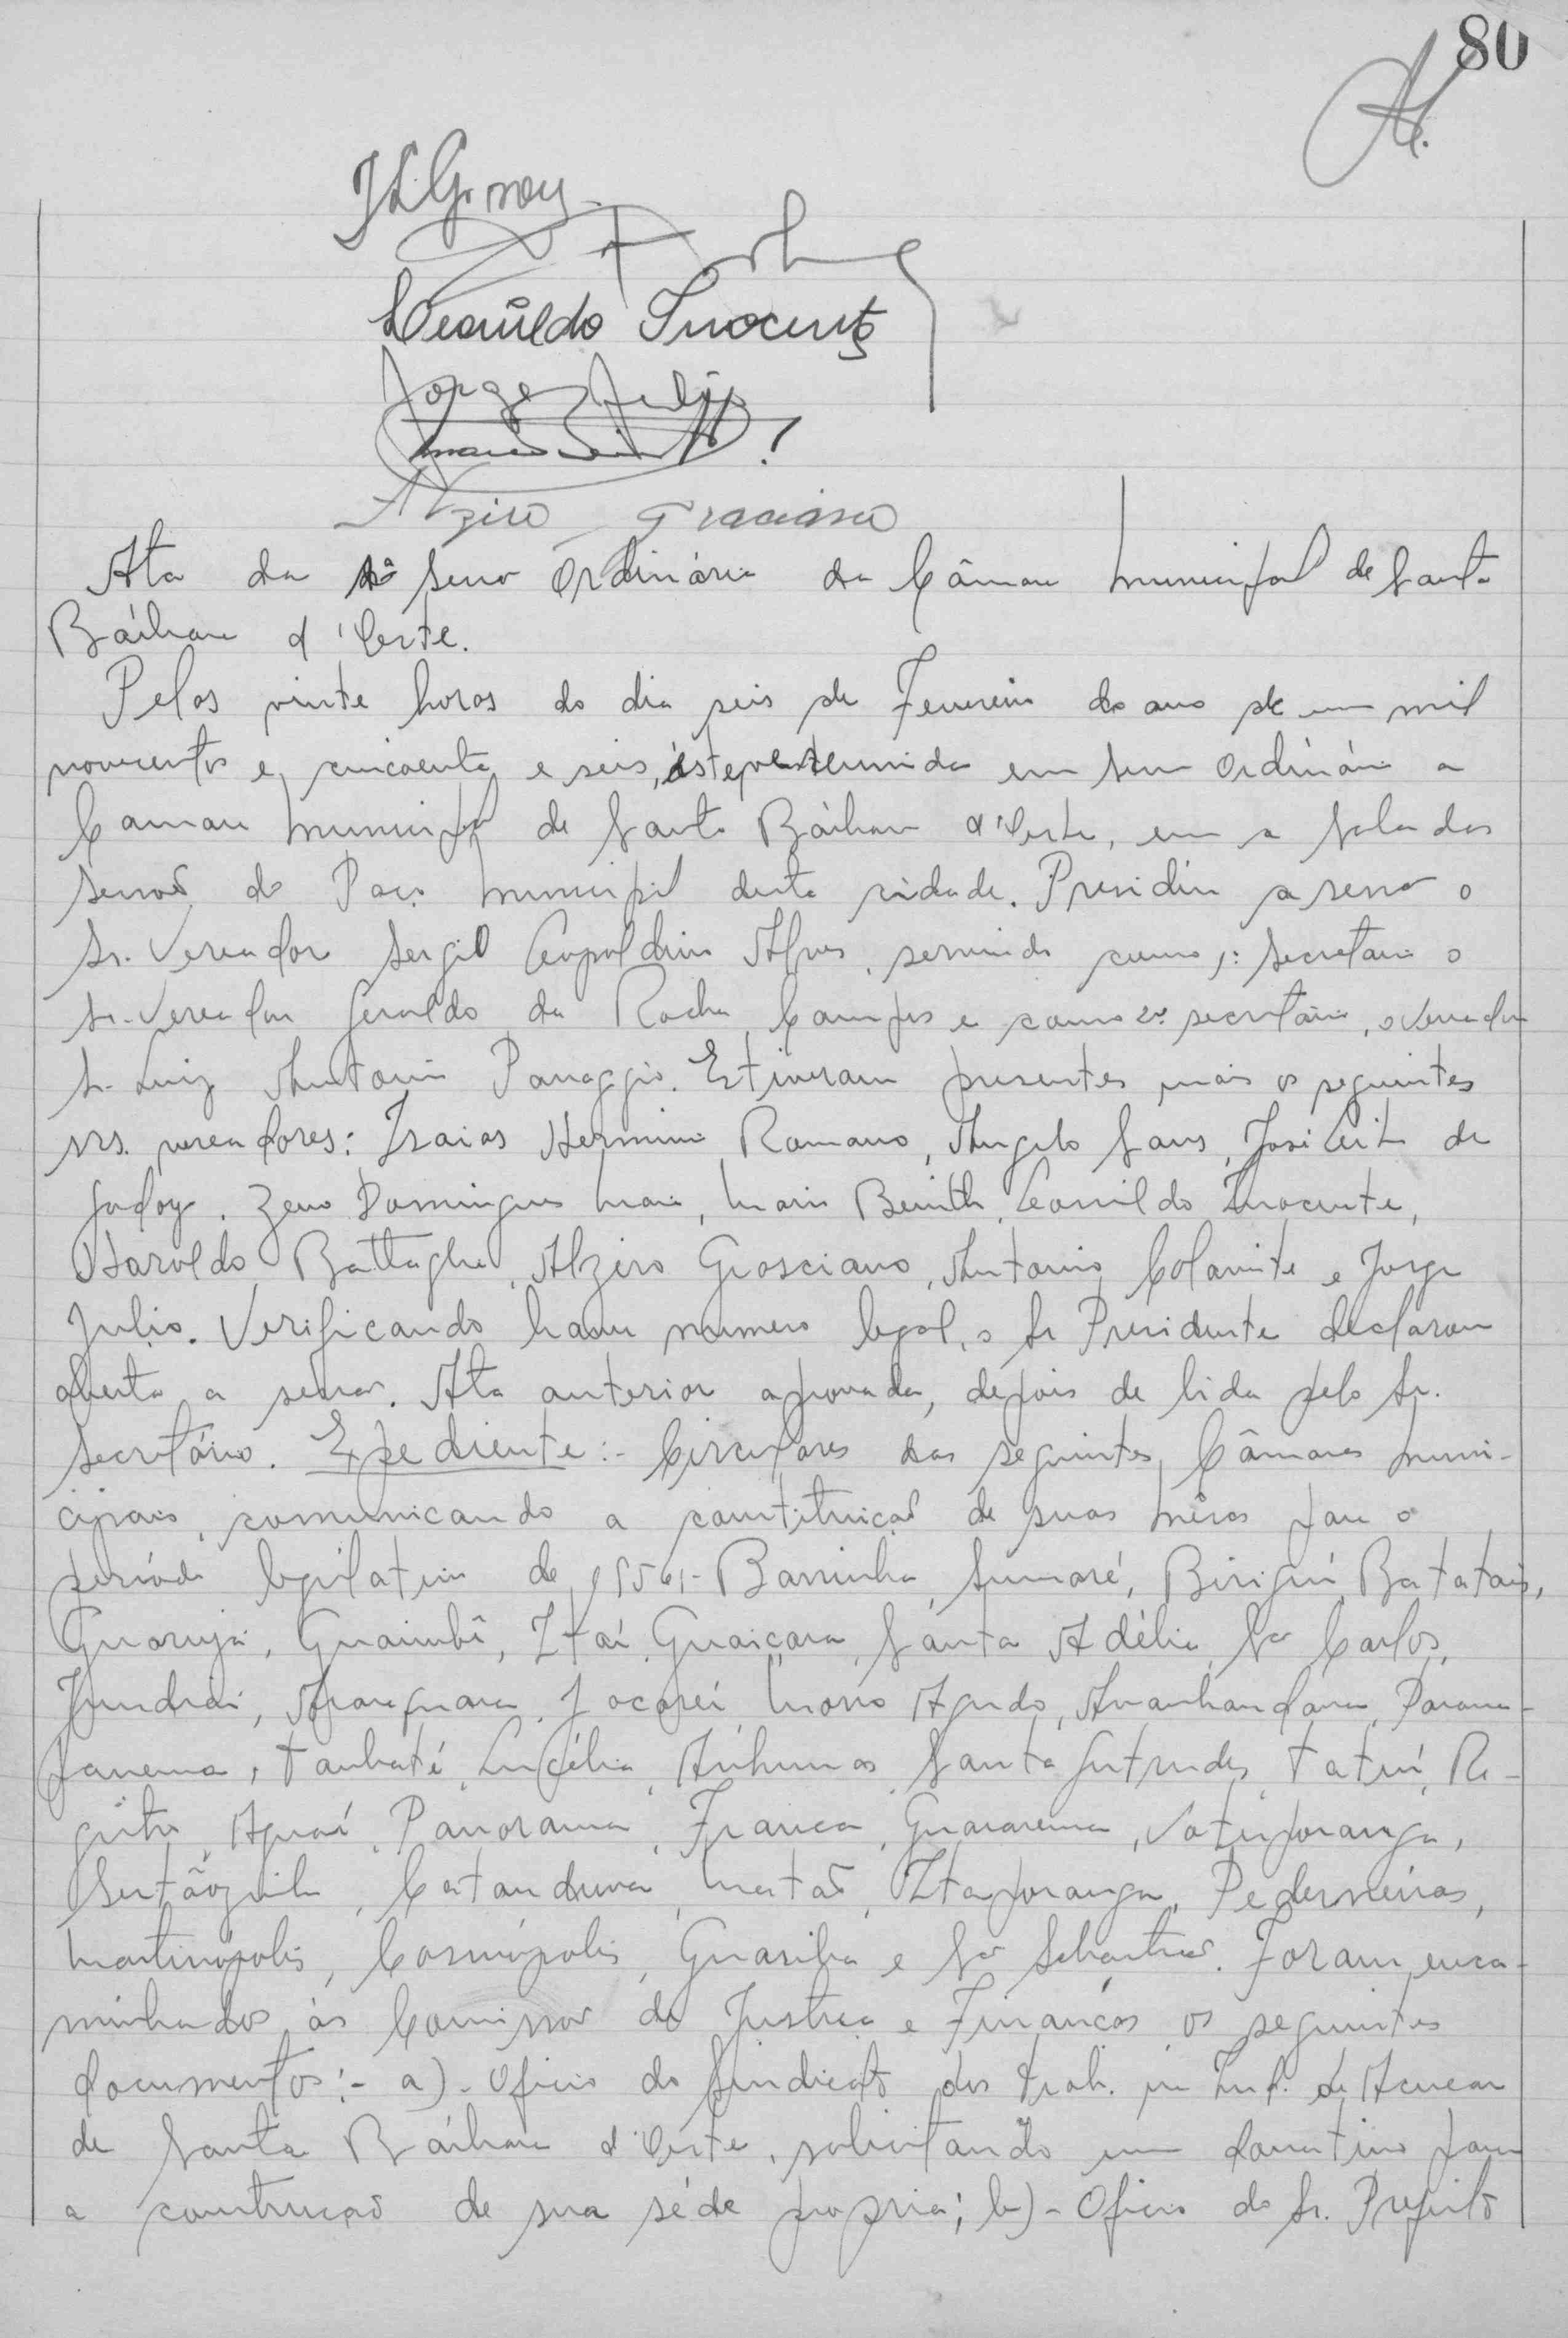 80
Leonildo Inocente
Jorge Julio
Alziro Grasciano
Ata da sessão Ordinária da Câmara Municipal de Santa
Bárbara d'Oeste.
Pelas vinte horas do dia seis de Fevereiro do ano de um mil
novecentos e cincoenta e seis, esteve reunida em sessão Ordinária a
Camara Municipal de Santa Bárbara d'Oeste, em a sala das
sessões do Paço Municipal desta cidade. Presidiu a sessão o
Sr. Vereador Sergio Leopoldino Alves, servindo como 1º secretario o
Sr. Vereador Geraldo da Rocha Campos e como 2º secretário, o Vereador
Sr. Luiz Antonio Panaggio. Estiveram presentes mais os seguintes
srs. vereadores: Isaias Herminio Romano, Angelo Sans, José Leite de
Godoy, Zeno Domingues Maia, Mario Benith, Leonildo Inocente,
Haroldo Battaglia, Alziro Grosciano, Antonio Colamite e Jorge
Julio. Verificando haver numero legal, o Sr Presidente declarou
aberta a sessão. Ata anterior aprovada, depois de lida pelo Sr.
Secretário. Expediente:- Circulares das seguintes Câmaras Muni-
cipais, comunicando a constituição de suas mêsas para o
período legislativo de 1956:- Barrinha, Sumaré, Birigui, Batatais,
Guarujá, Guaimbê, Itaí, Guaiçara, Santa Adélia, São Carlos,
Jundiai, Araraquara, Jacareí, Morro Agudo, Avanhandava, Parana-
panema, Taubaté, Lucélia, Anhumas, Santa Gertrudes, Tatuí, Re-
gistro, Aguaí, Panorama, Franca, Guararema, Votuporanga,
Sertãozinho, Catanduva, Matão, Itaporanga, Pederneiras,
Martinópolis, Cosmópolis, Guariba e São Sebastião. Foram enca-
minhados às Comissão de Justiça e Finanças os seguintes
documentos:- a)- Oficio do Sindicato dos Trab. na Ind. de Açucar
de Santa Bárbara d'Oeste, solicitando um donativo para
a construção de sua séde propria; b)- Oficio do Sr. Prefeito